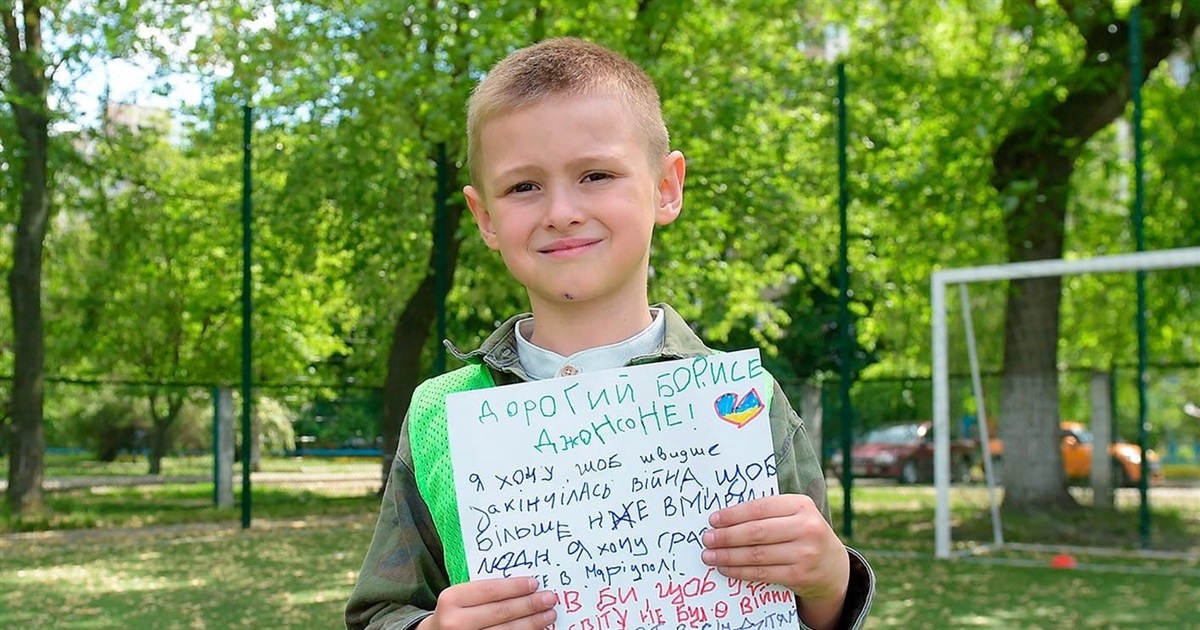 ДОРОГИЙ БОРИСЕ
ДЖОНСОНЕ!
Я ХОЧУ, ЩОБ ШВИДШЕ
ЗАКІНЧІЛАСЬ ВІЙНА, ЩОБ
БІЛЬШЕ НЕ ВМИРАЛИ
ЛЮДИ. Я ХОЧУ
В МАРІУПОЛІ.
БИ, ЩОБ У
СВІТУ НЕ БУЛО ВІЙНИ